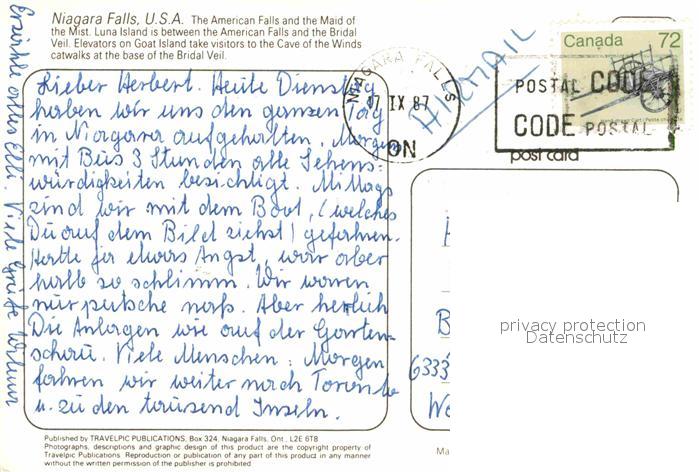 Niagara Falls, U.S.A. The American Falls and the Maid of
the Mist. Luna Island is between the American Falls and the Bridal
Veil. Elevators on Goat Island take visitors to the Cave of the Winds
catwalks at the base of the Bridal Veil.
Lieber Herbert. Heute Dienstag
haben wir uns den ganzen Tag
in Niagara aufgehalten. Morgens
mit Bus 3 Stunden alle Sehens-
würdigkeiten besichtigt. Mittags
sind wir mit dem Boot, (welches
Du auf dem Bild siehst) gefahren.
Hatte für etwas Angst, war aber
halb so schlimm. Wir waren
nur putsche naß. Aber herrlich
Die Anlagen wie auf der Garten-
schau. Viele Menschen. Morgen
fahren wir weiter nach Toronto
u. zu den tausend Inseln.
Erzähle alles Elli. Viele Grüße
NIAGARA FALLS
17 IX 87
ON
AIRMAIL
Canada 72
POSTAL CODE
CODE POSTAL
post card
B
6333
We
privacy protection
Datenschutz
Published by TRAVELPIC PUBLICATIONS, Box 324, Niagara Falls, Ont., L2E 6T8
Photographs, descriptions and graphic design of this product are the copyright property of
Travelpic Publications. Reproduction or publication of any part of this product in any manner
without the written permission of the publisher is prohibited
Ma